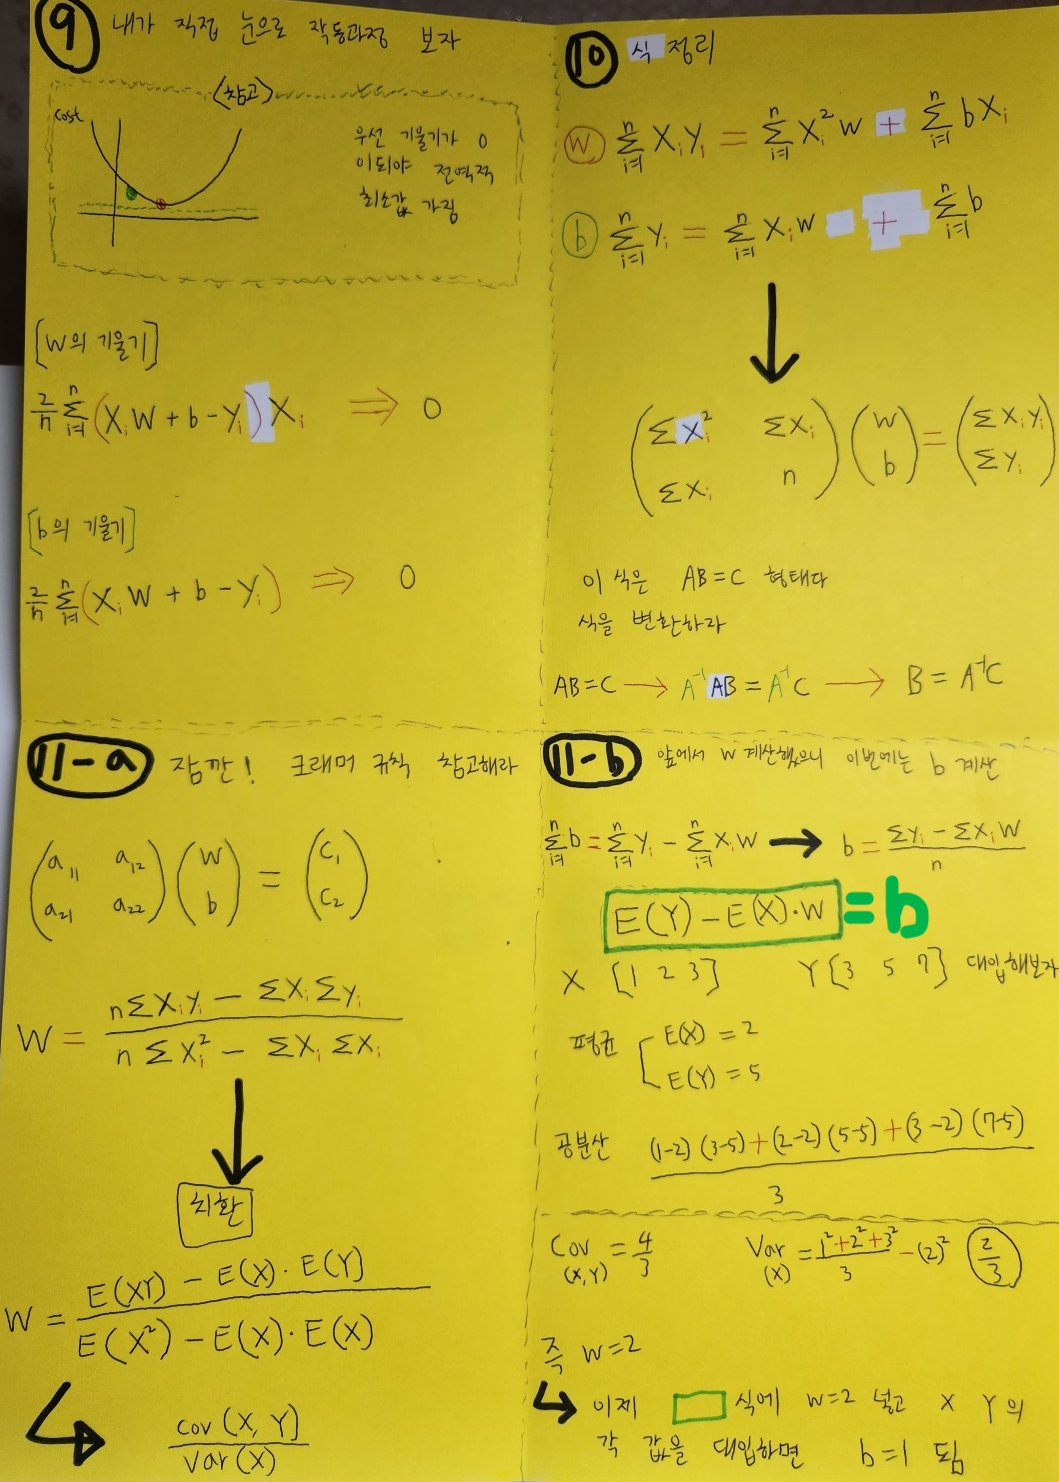 ⑨ 내가 직접 눈으로 작동과정 보자
<참고>
cost
우선 기울기가 0
이되야 전역적
최소값 가짐
[W의 기울기]
2/n Σ_{i=1}^{n} (X_i W + b - Y_i) X_i ⇒ 0
[b의 기울기]
2/n Σ_{i=1}^{n} (X_i W + b - Y_i) ⇒ 0
⑩ 식 정리
ⓦ Σ_{i=1}^{n} X_i Y_i = Σ_{i=1}^{n} X_i^2 W + Σ_{i=1}^{n} b X_i
ⓑ Σ_{i=1}^{n} Y_i = Σ_{i=1}^{n} X_i W + Σ_{i=1}^{n} b
↓
( ΣX_i^2 ΣX_i ) ( W ) = ( ΣX_i Y_i )
( ΣX_i n ) ( b ) ( ΣY_i )
이 식은 AB=C 형태다
식을 변환하자
AB=C → A^-1 AB = A^-1 C → B = A^-1 C
11-a 잠깐! 크래머 규칙 참고해라
( a_11 a_12 ) ( W ) = ( C_1 )
( a_21 a_22 ) ( b ) ( C_2 )
W = (nΣX_i Y_i - ΣX_i ΣY_i) / (nΣX_i^2 - ΣX_i ΣX_i)
↓
치환
W = (E(XY) - E(X)·E(Y)) / (E(X^2) - E(X)·E(X))
↳ Cov(X, Y) / Var(X)
11-b 앞에서 W 계산했으니 이번에는 b 계산
Σ_{i=1}^{n} b = Σ_{i=1}^{n} Y_i - Σ_{i=1}^{n} X_i W → b = (ΣY_i - ΣX_i W) / n
E(Y) - E(X)·W = b
X [1 2 3] Y [3 5 7] 대입해보자
평균 E(X) = 2
E(Y) = 5
공분산 ((1-2)(3-5)+(2-2)(5-5)+(3-2)(7-5)) / 3
Cov(X,Y) = 4/3 Var(X) = (1^2+2^2+3^2)/3 - (2)^2 2/3
즉 W=2
↳ 이제 □ 식에 W=2 넣고 X Y의
각 값을 대입하면 b=1 됨